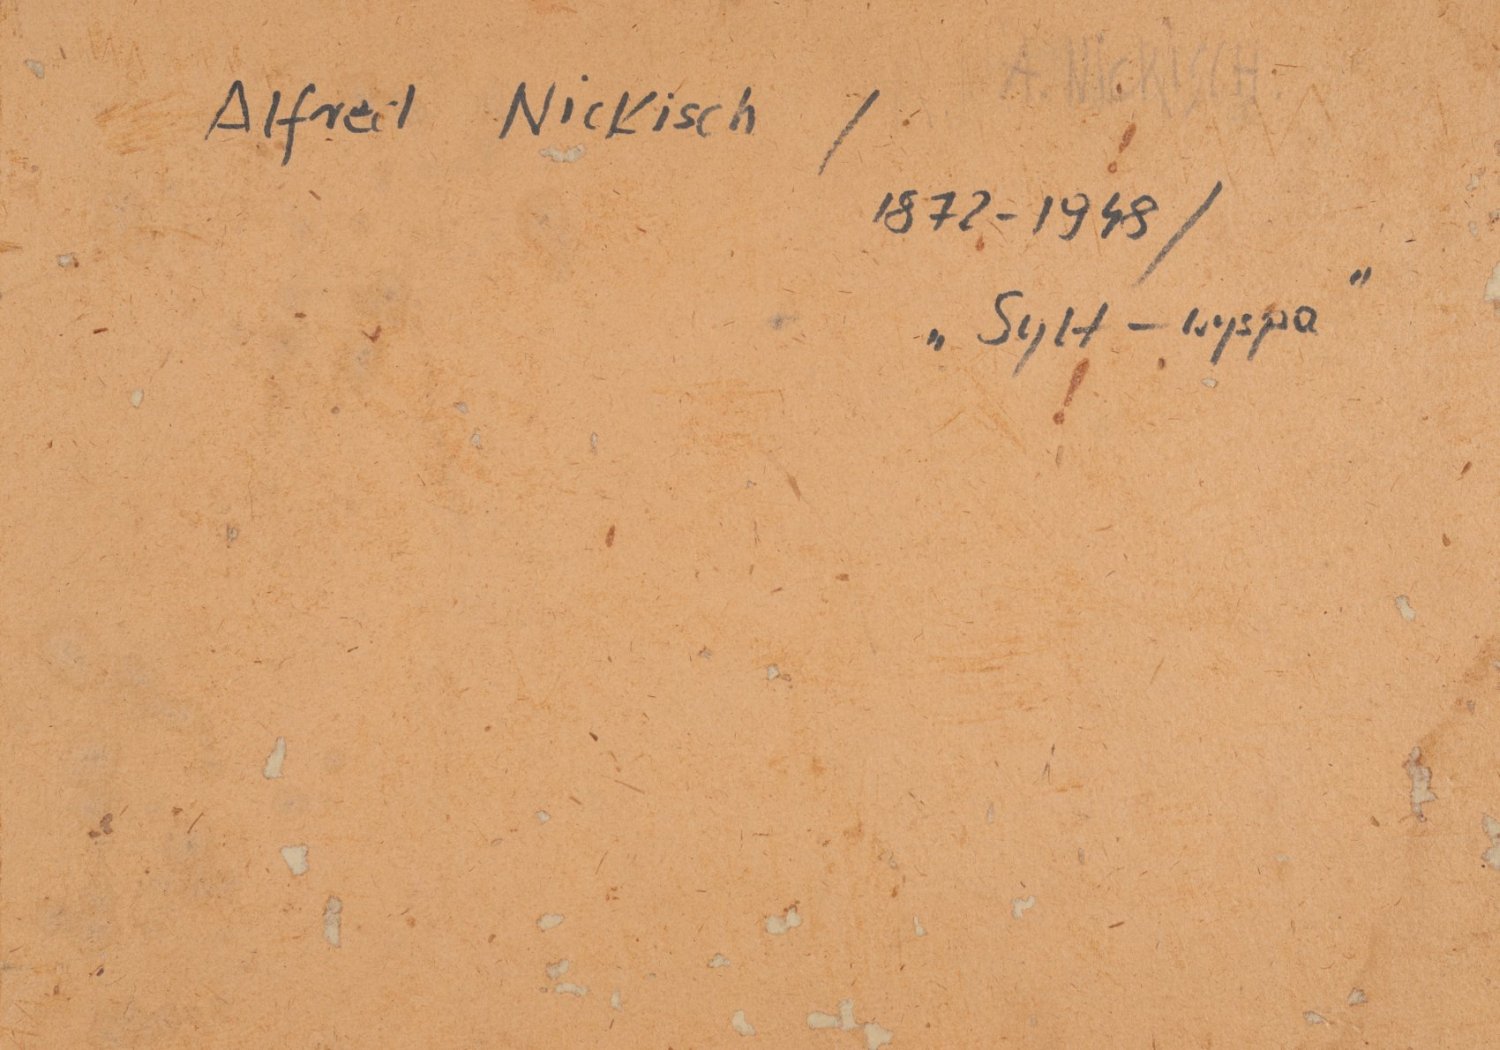 A. NICKISCH.
Alfred Nickisch /
1872-1948/
„Sylt - wyspa"